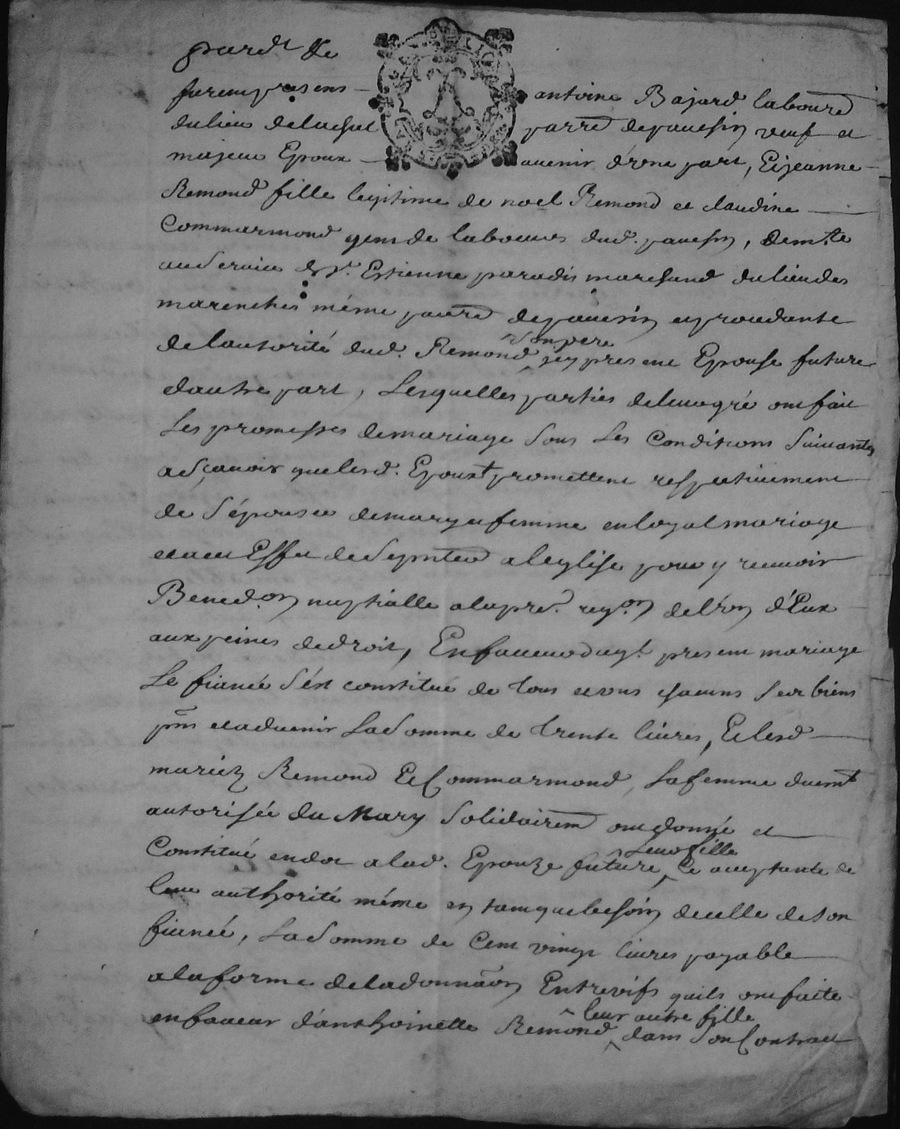 pardt Le
furent presens antoine Bajard laboure
du lieu de lachal parre de panesin veuf et
majeur Epoux avenir d'une part, Et jeanne
Remond fille legitime de noel Remond et claudine
Commarmond gens de laboeur dud. panesin, demte
au service de Sr. Estienne paradis marchand du lieu des
marenches même parre de panesin en procedante
de l'autorité dud. Remond son pere icy present Epouse future
d'autre part, Lesquelles parties de leur gré ont fait
Les promesses de mariage sous Les Conditions suivantes
a sçavoir que lesd. Epoux promettent respectivement
de s'épouser de mary et femme en loyal mariage
et a cet Effet de se pnter a leglise pour y recevoir
Benedon nuptialle a la pre. reqon de l'un d'Eux
aux peines de droit, En faveur duqt. present mariage
Le fiancé s'est constitué de tous et uns chacuns ses biens
pns et advenir La somme de trente livres, Et lesd
mariez Remond Et Commarmond, La femme duemt
autorisée du Mary solidairemt ont donné et
Constitué en dot a lad. Epouze future, leur fille Ce acceptante de
leur authorité même en tant que besoin de celle de son
fiancé, La somme de Cent vingt livres payable
a la forme de la donnaon Entrevifs quils ont faite
en faveur d'anthoinette Remond leur autre fille dans son Contract